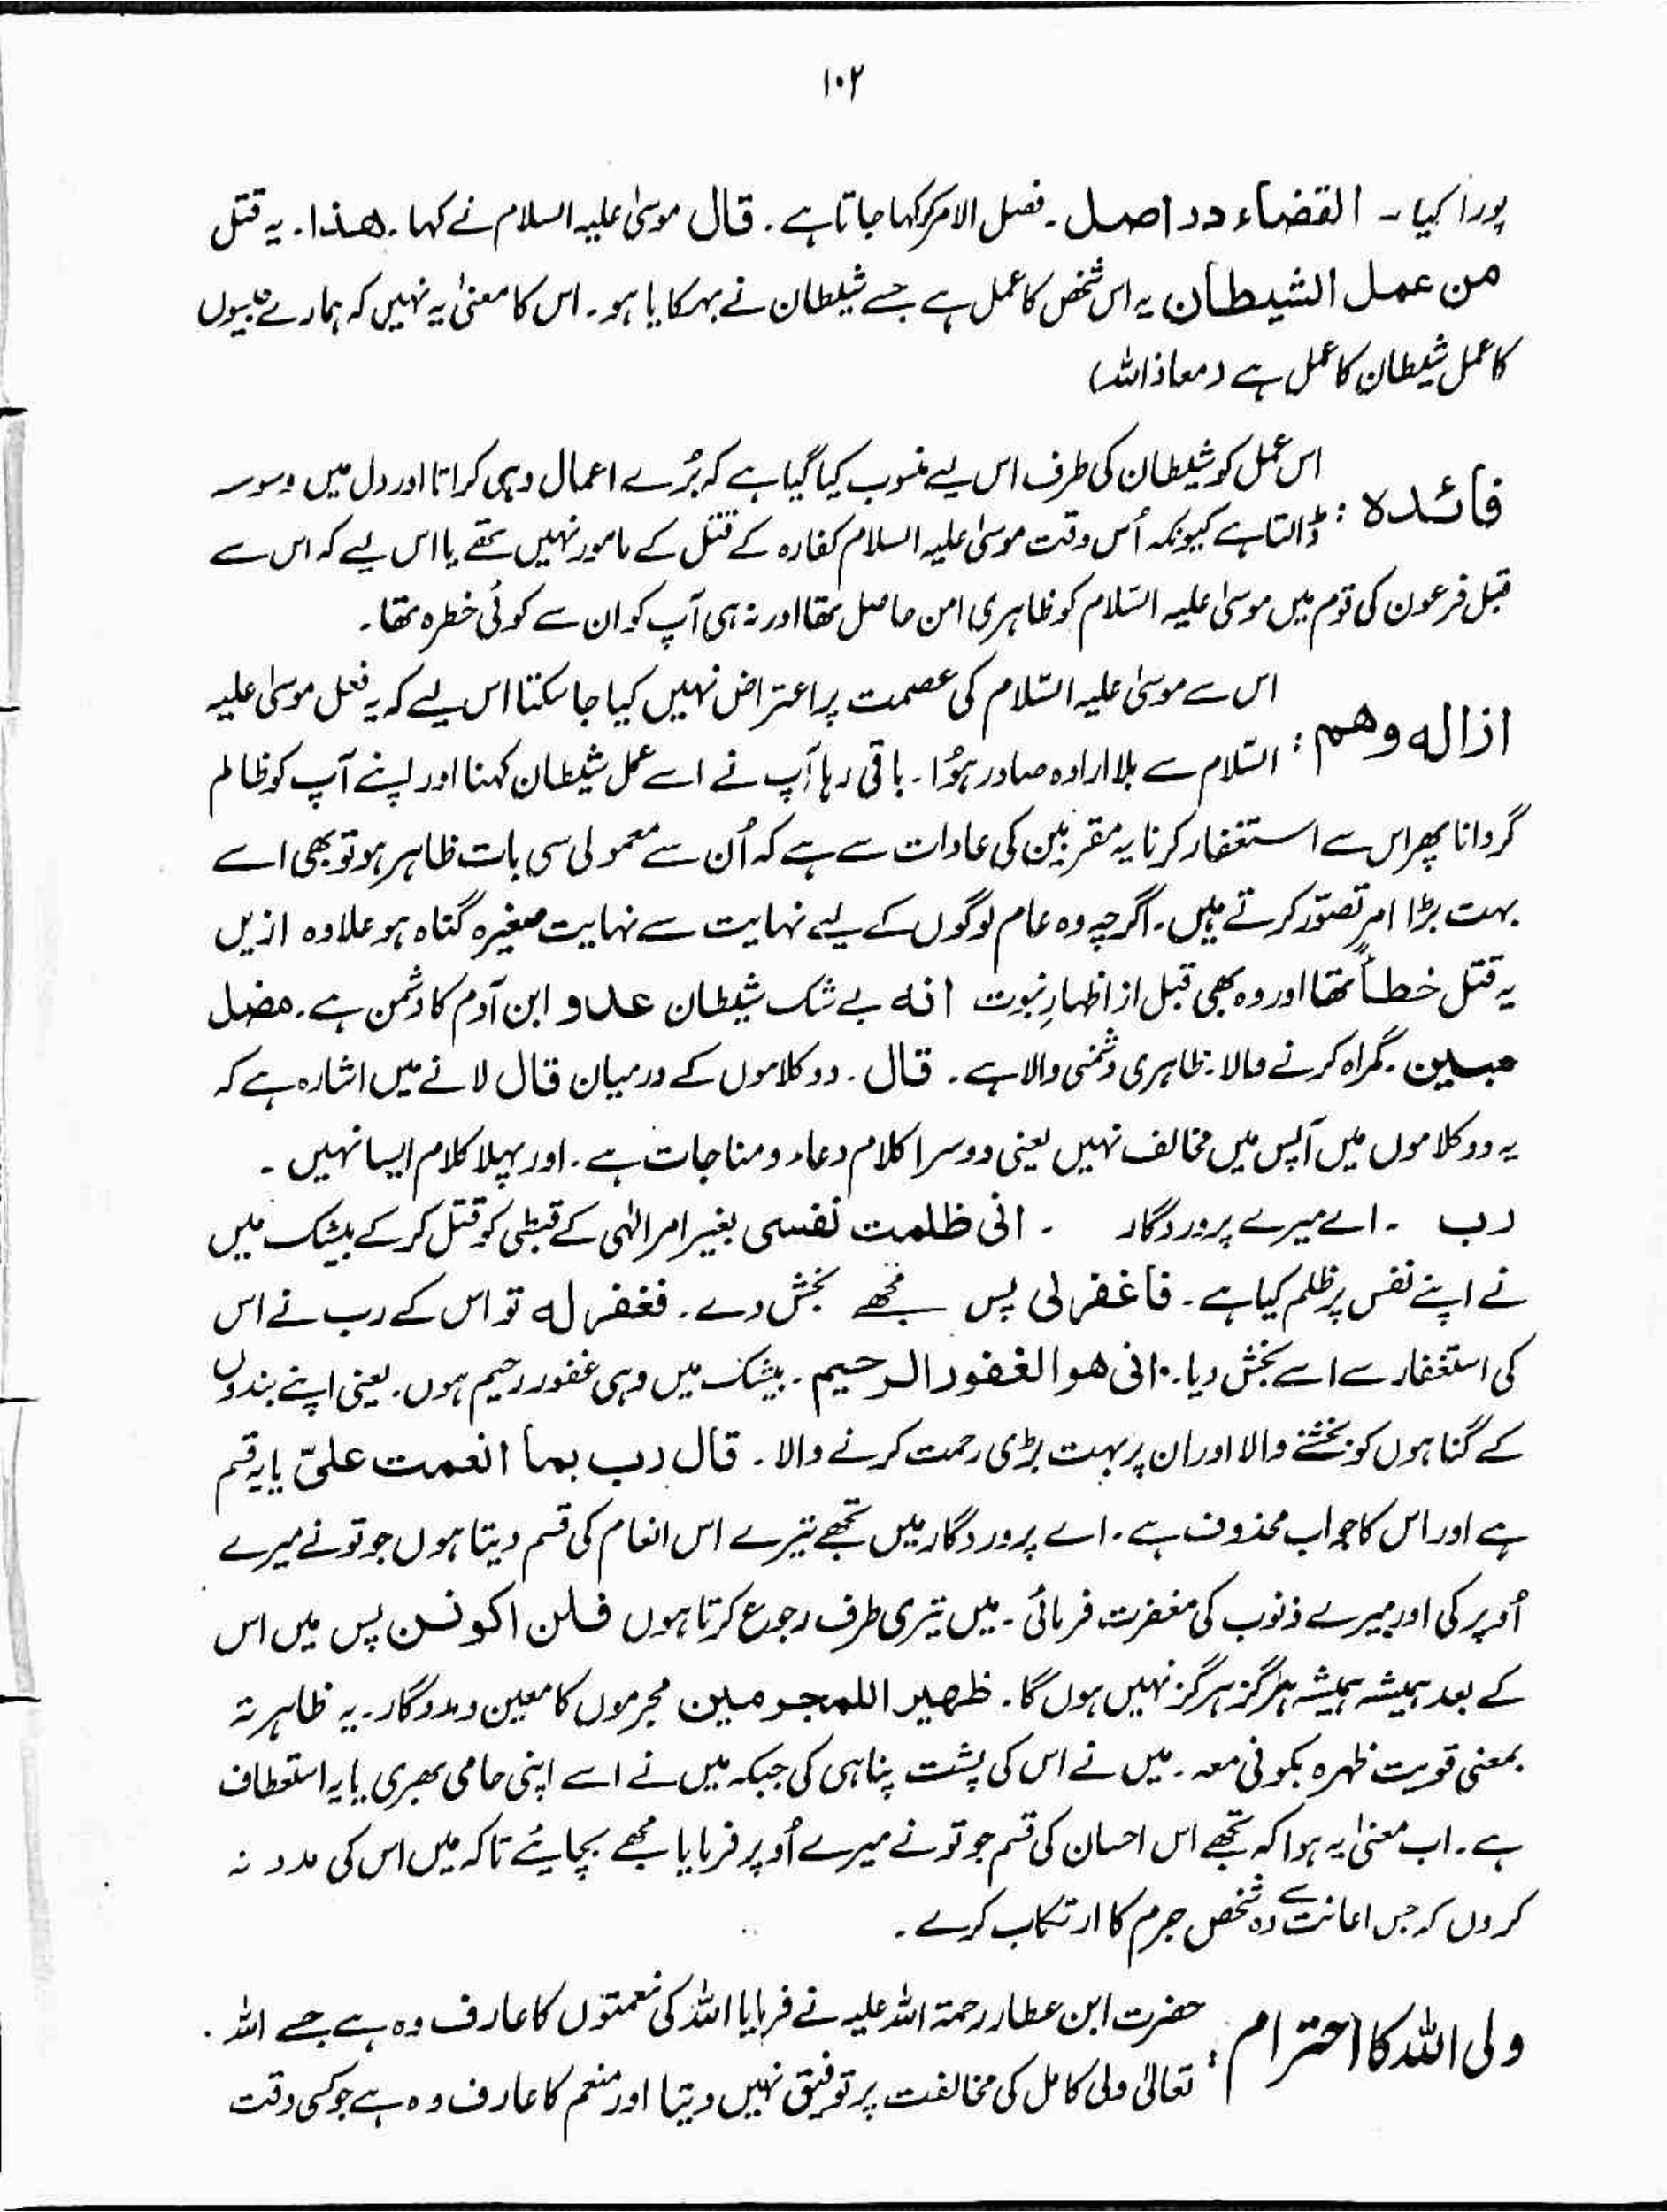 ۱۰۲
پورا کیا۔ القضاء دراصل۔ فصل الامر کو کہا جاتا ہے۔ قال موسیٰ علیہ السلام نے کہا۔ ھذا۔ یہ قتل
من عمل الشیطان یہ اس شخص کا عمل ہے جسے شیطان نے بہکایا ہو۔ اس کا معنیٰ یہ نہیں کہ ہمارے جیسوں
کا عمل شیطان کا عمل ہے (معاذ اللہ)
فائدہ : اس عمل کو شیطان کی طرف اس لیے منسوب کیا گیا ہے کہ بُرے اعمال وہی کراتا اور دل میں وسوسہ
ڈالتا ہے کیونکہ اُس وقت موسیٰ علیہ السلام کفارہ کے قتل کے مامور نہیں تھے یا اس لیے کہ اس سے
قبل فرعون کی قوم میں موسیٰ علیہ السّلام کو ظاہری امن حاصل تھا اور نہ ہی آپ کو ان سے کوئی خطرہ تھا۔
ازالہ وھم : اس سے موسیٰ علیہ السّلام کی عصمت پر اعتراض نہیں کیا جا سکتا اس لیے کہ یہ فعل موسیٰ علیہ
السّلام سے بلا ارادہ صادر ہوُا۔ باقی رہا آپ نے اسے عمل شیطان کہنا اور اپنے آپ کو ظالم
گردانا پھر اس سے استغفار کرنا یہ مقربین کی عادات سے ہے کہ اُن سے معمولی سی بات ظاہر ہو تو بھی اسے
بہت بڑا امر تصوّر کرتے ہیں۔ اگرچہ وہ عام لوگوں کے لیے نہایت سے نہایت صغیرہ گناہ ہو علاوہ ازیں
یہ قتل خطاً تھا اور وہ بھی قبل از اظہارِ نبوت انہ بے شک شیطان عدو ابن آدم کا دشمن ہے۔ مضل
مبین۔ گمراہ کرنے والا۔ ظاہری دشمنی والا ہے۔ قال۔ دو کلاموں کے درمیان قال لانے میں اشارہ ہے کہ
یہ دو کلاموں میں آپس میں مخالف نہیں یعنی دوسرا کلام دعاء و مناجات ہے۔ اور پہلا کلام ایسا نہیں۔
رب ۔ اے میرے پروردگار ۔ انی ظلمت نفسی بغیر امر الٰہی کے قبطی کو قتل کر کے بیشک میں
نے اپنے نفس پر ظلم کیا ہے۔ فاغفرلی پس مجھے بخش دے۔ فغفر لہ تو اس کے رب نے اس
کی استغفار سے اسے بخش دیا۔ انی ھو الغفور الرحیم۔ بیشک میں وہی غفور رحیم ہوں۔ یعنی اپنے بندوں
کے گناہوں کو بخشنے والا اور ان پر بہت بڑی رحمت کرنے والا۔ قال رب بما انعمت علیّ یا یہ قسم
ہے اور اس کا جواب محذوف ہے۔ اے پروردگار میں تجھے تیرے اس انعام کی قسم دیتا ہوں جو تو نے میرے
اُوپر کی اور میرے ذنوب کی مغفرت فرمائی۔ میں تیری طرف رجوع کرتا ہوں فلن اکونن پس میں اس
کے بعد ہمیشہ ہمیشہ ہرگز ہرگز نہیں ہوں گا۔ ظھیر اللمجرمین مجرموں کا معین و مددگار۔ یہ ظاہرتہ
بمعنی قویت ظہرہ بکونی معہ۔ میں نے اس کی پشت پناہی کی جبکہ میں نے اسے اپنی حامی بھری یا یہ استعطاف
ہے۔ اب معنیٰ یہ ہوا کہ تجھے اس احسان کی قسم جو تو نے میرے اُوپر فرمایا مجھے بچایئے تاکہ میں اس کی مدد نہ
کروں کہ جس اعانت سے وہ شخص جرم کا ارتکاب کرے۔
ولی اللہ کا احترام : حضرت ابن عطار رحمۃ اللہ علیہ نے فرمایا اللہ کی نعمتوں کا عارف وہ ہے جسے اللہ
تعالیٰ ولی کامل کی مخالفت پر توفیق نہیں دیتا اور منعم کا عارف وہ ہے جو کسی وقت